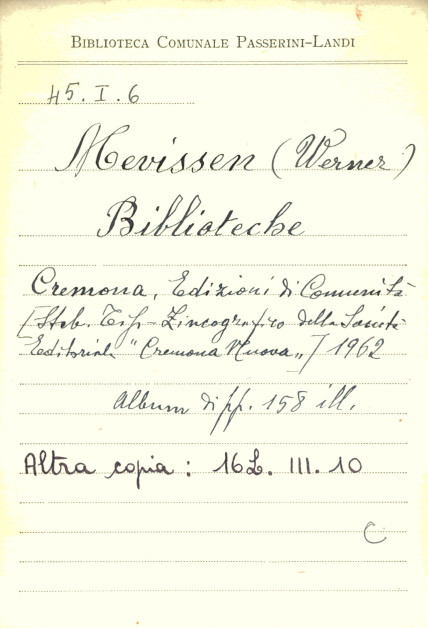 BIBLIOTECA COMUNALE PASSERINI-LANDI
45. I. 6
Mevissen (Werner)
Biblioteche
Cremona, Edizioni di Comunità
[Stab. Tip-Zincografico della Società
Editoriale "Cremona Nuova„] 1962
Album di pp. 158 ill.
Altra copia : 16L. III. 10
C